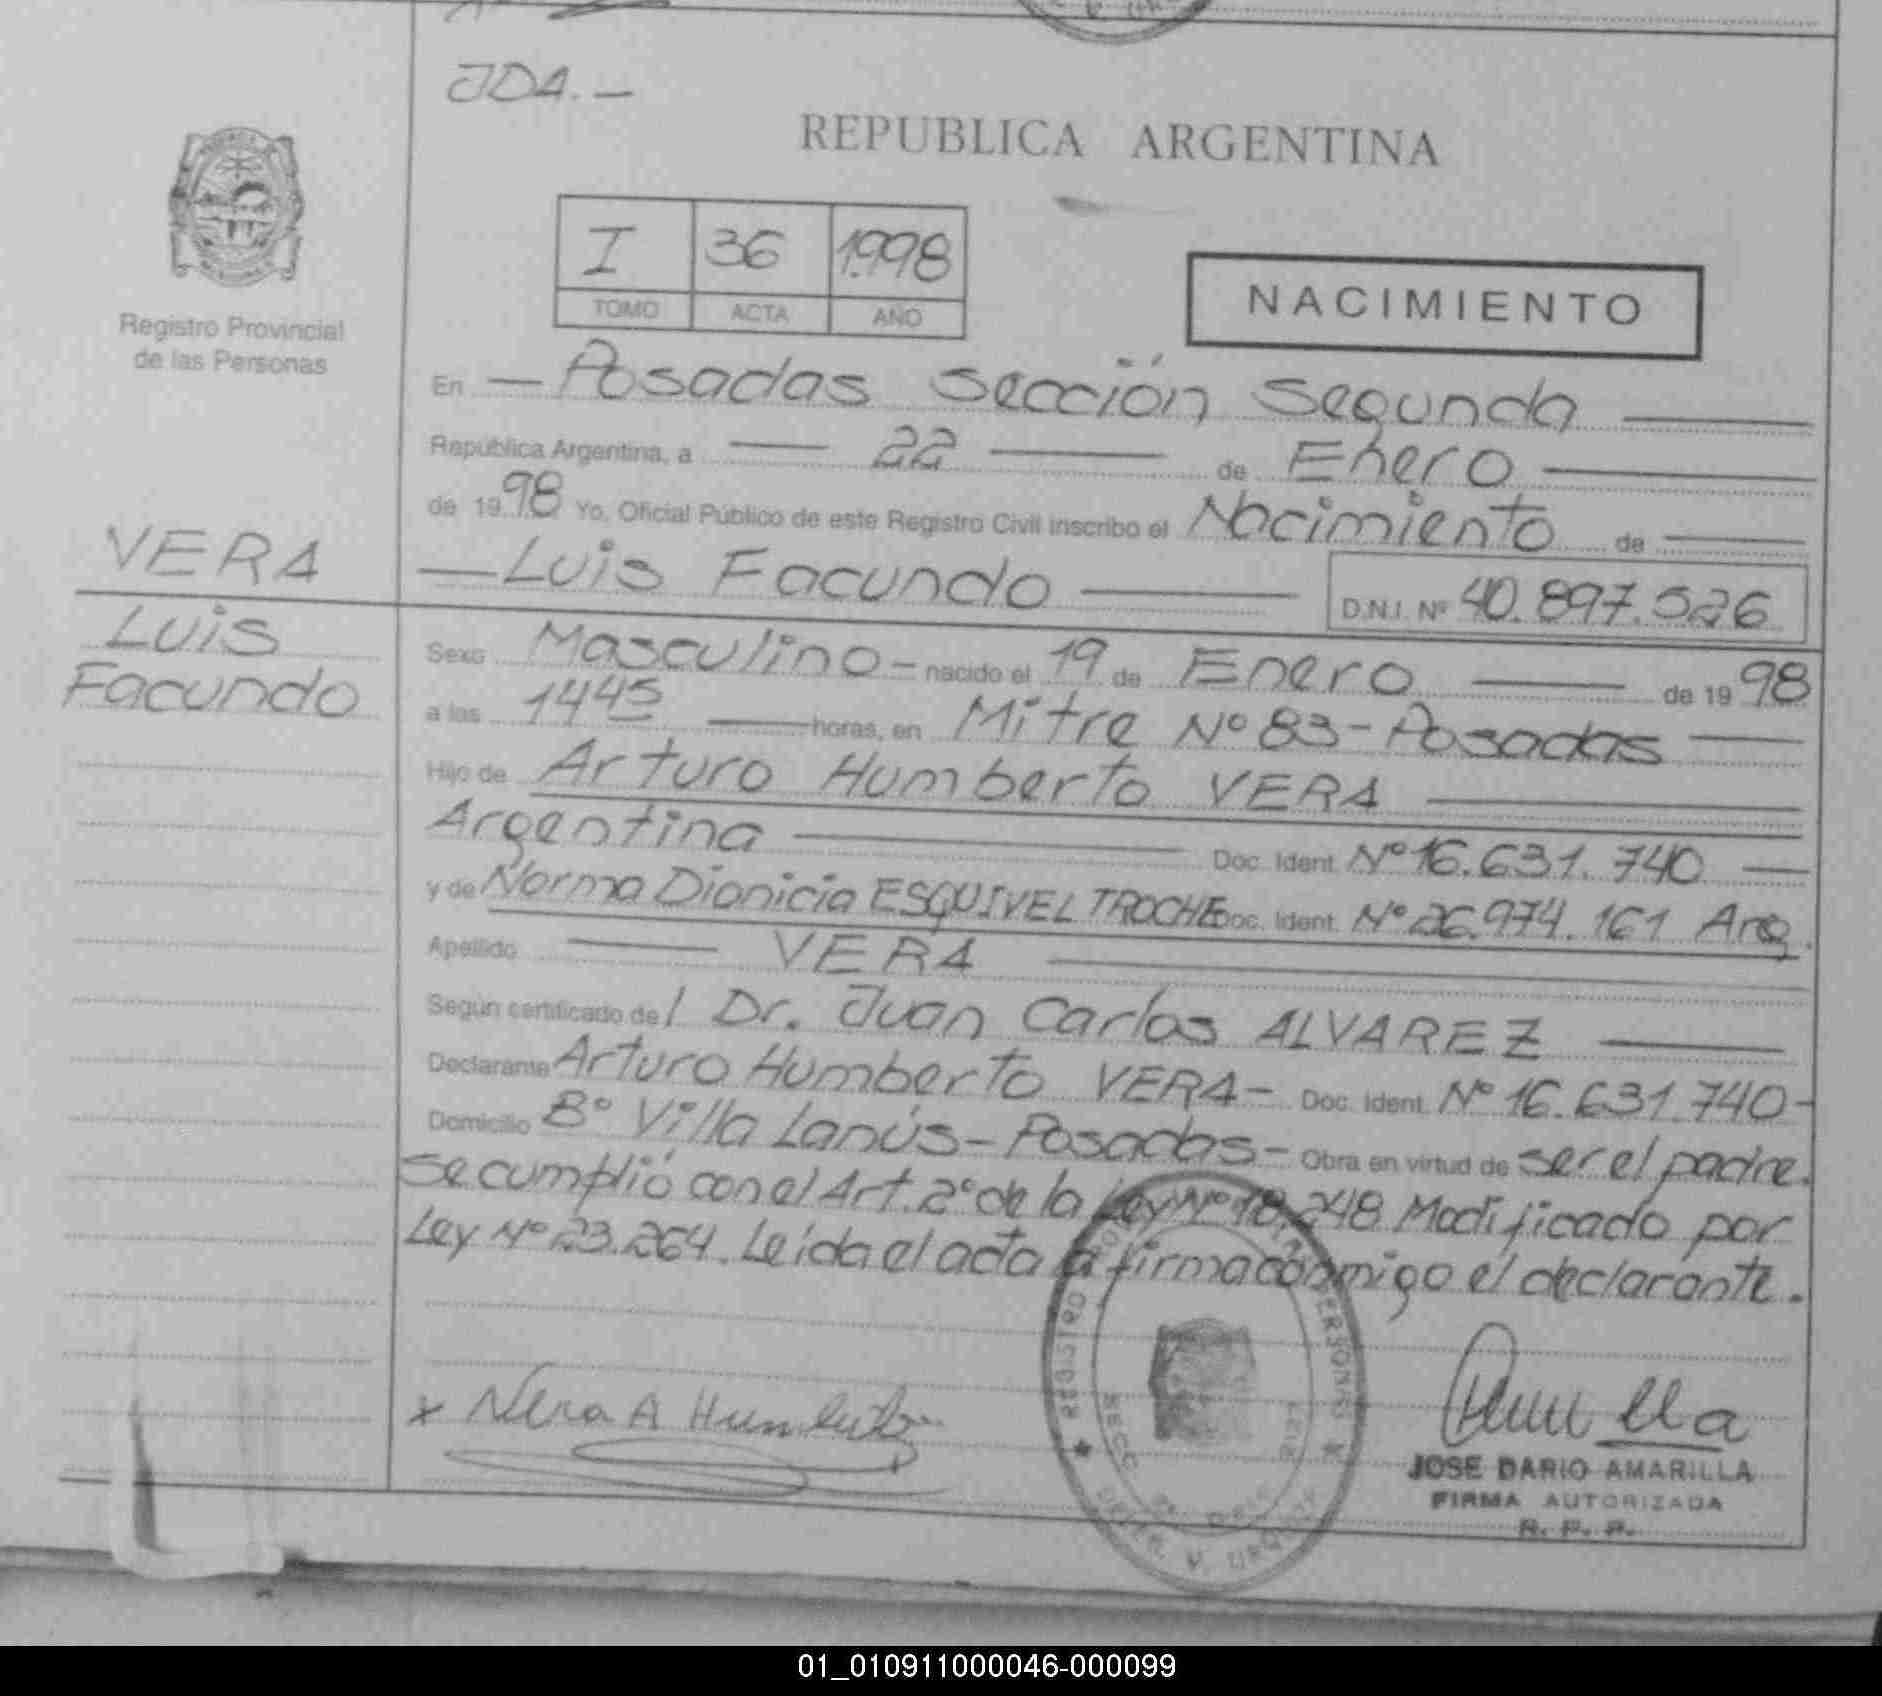 JDA.-
REPUBLICA ARGENTINA
I 36 1.998
TOMO ACTA AÑO
NACIMIENTO
Registro Provincial
de las Personas
En Posadas Sección Segunda
República Argentina, a 22 de Enero
de 1998 Yo, Oficial Público de este Registro Civil inscribo el Nacimiento de
VERA
Luis
Facundo
Luis Facundo D.N.I. Nº 40.897.526
Sexo Masculino - nacido el 19 de Enero de 1998
a las 1445 horas, en Mitre Nº 83 - Posadas
Hijo de Arturo Humberto VERA
Argentina Doc. Ident. Nº 16.631.740
y de Norma Dionicia ESQUIVEL TROCHE Doc. Ident. Nº 26.974.161 Arg.
Apellido VERA
Según certificado del Dr. Juan Carlos ALVAREZ
Declarante Arturo Humberto VERA - Doc. Ident. Nº 16.631.740-
Domicilio Bº Villa Lanús - Posadas - Obra en virtud de ser el padre.
Se cumplió con el Art. 2º de la Ley Nº 18.248 Modificado por
Ley Nº 23.264. Leída el acta la firma conmigo el declarante.
x Vera A Humberto
REGISTRO PERSONAS
JOSE DARIO AMARILLA
FIRMA AUTORIZADA
R. P. P.
01_010911000046-000099